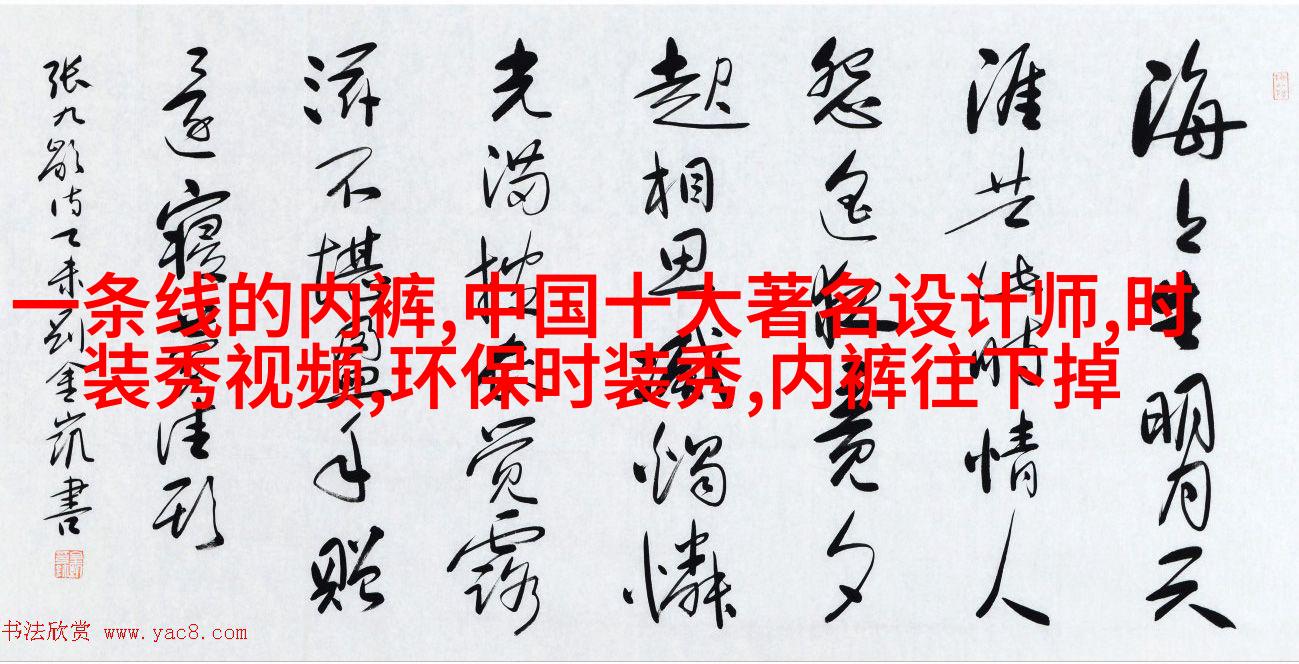 海上生明月天
涯共此時情人
怨遥夜竟夕
起相思滅燭憐
光满披衣觉露
滋不堪盈手赠
还寝梦佳期
张九龄诗乙未刘金凯書
一条线的内裤,中国十大著名设计师,时
装秀视频,环保时装秀,内裤往下掉
书法欣赏 www.yac8.com